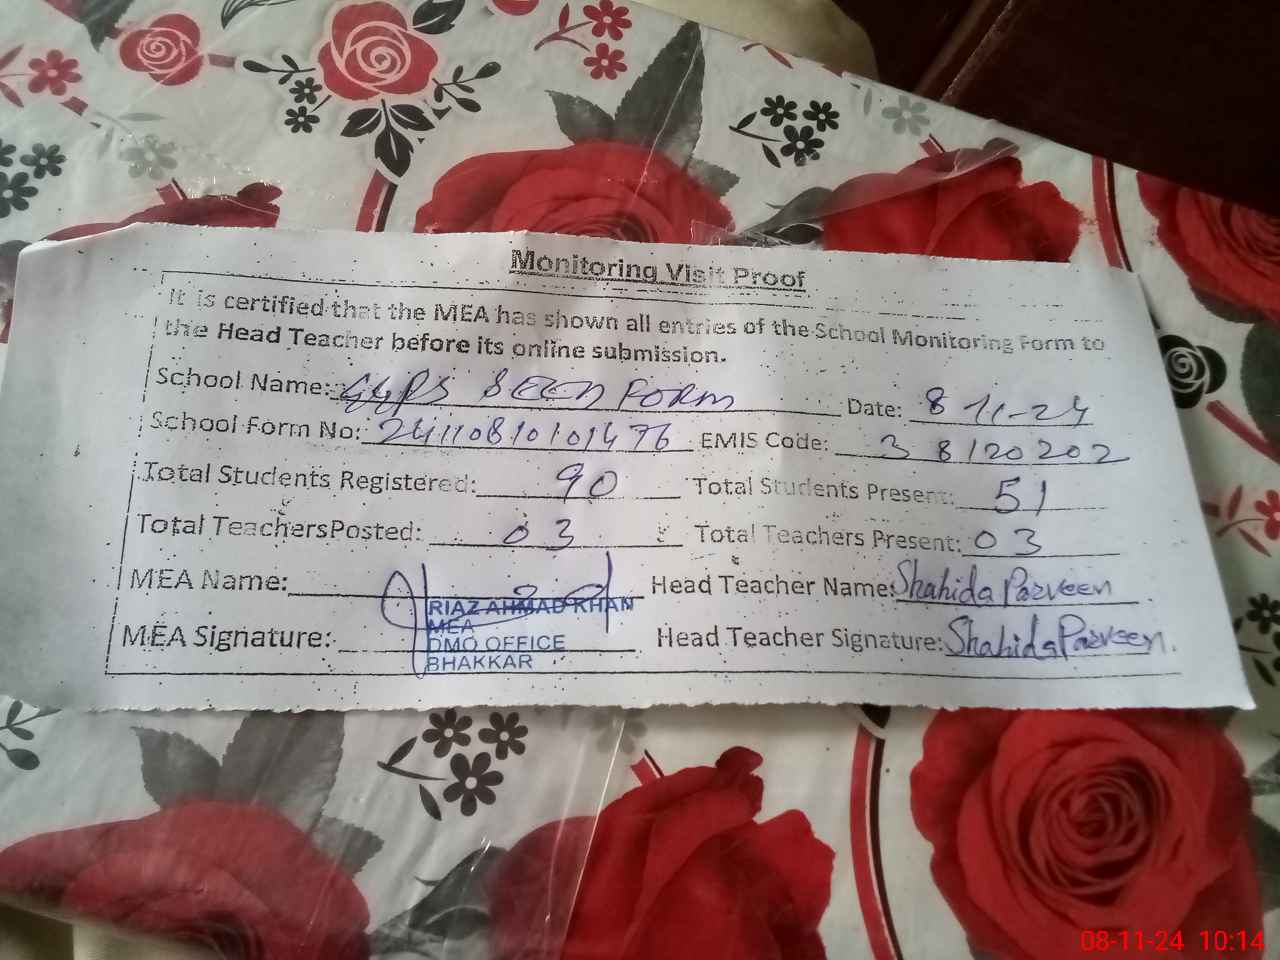 Monitoring Visit Proof
It is certified that the MEA has shown all entries of the School Monitoring Form to
the Head Teacher before its online submission.
School Name: GGPS SEED FORM Date: 8 11-24
School Form No: 24110810101476 EMIS Code: 38120202
Total Students Registered: 90 Total Students Present: 51
Total TeachersPosted: 03 Total Teachers Present: 03
MEA Name: Head Teacher Name: Shahida Parveen
RIAZ AHMAD KHAN
MEA
MEA Signature: Head Teacher Signature: Shahida Parveen.
DMO OFFICE
BHAKKAR
08-11-24 10:14